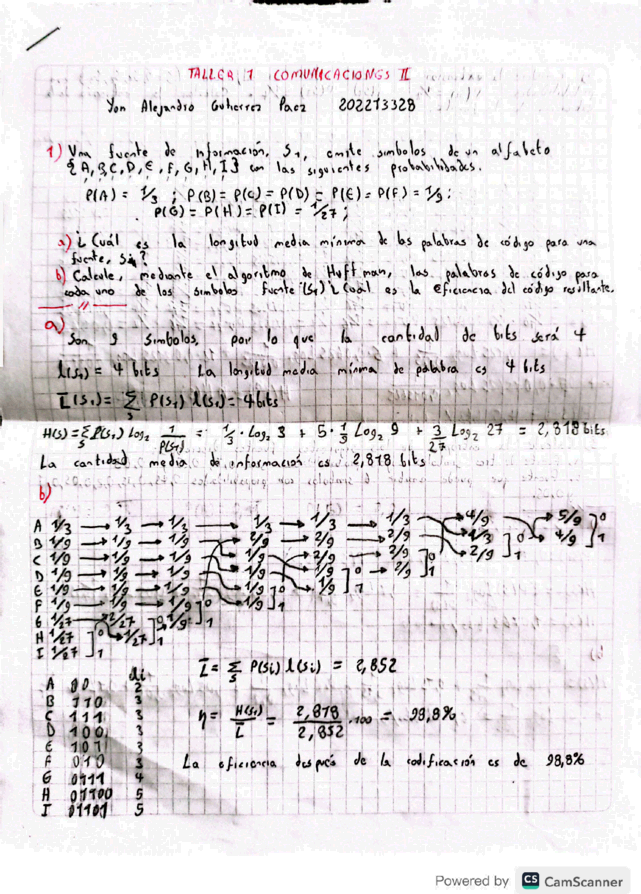 TALLER 1 COMUNICACIONES II
Yon Alejandro Gutierrez Paez 202213328
1) Una fuente de información, S1, emite simbolos de un alfabeto
{A, B, C, D, E, F, G, H, I} con las siguientes probabilidades.
P(A) = 1/3 ; P(B) = P(C) = P(D) = P(E) = P(F) = 1/9 ;
P(G) = P(H) = P(I) = 1/27 ;
a) ¿Cuál es la longitud media mínima de las palabras de código para una
fuente, S1?
b) Calcule, mediante el algoritmo de Huffman, las palabras de código para
cada uno de los simbolos fuente (S1) ¿Cual es la eficiencia del código resultante.
a)
Son 9 simbolos, por lo que la cantidad de bits será 4
l(s1) = 4 bits La longitud media mínima de palabra es 4 bits
L(s1) = Σ P(s1) l(s1) = 4 bits
H(s) = Σ P(s1) Log2 1/P(s1) = 1/3 · Log2 3 + 5 · 1/9 Log2 9 + 3/27 Log2 27 = 2,818 bits
La cantidad media de información es 2,818 bits
b)
A 1/3 → 1/3 → 1/3 → 1/3 → 1/3 → 1/3 4/9 5/9 0
B 1/9 → 1/9 → 1/9 2/9 2/9 2/9 1/3 0 4/9 1
C 1/9 → 1/9 → 1/9 1/9 2/9 2/9 0 2/9 1
D 1/9 → 1/9 → 1/9 1/9 1/9 0 → 2/9 1
E 1/9 → 1/9 → 1/9 1/9 0 1/9 1
F 1/9 → 1/9 → 1/9 0 1/9 1
G 1/27 2/27 0 1/9 1
H 1/27 0 1/27 1
I 1/27 1
di
A 00 2
B 110 3
C 111 3
D 100 3
E 101 3
F 010 3
G 0111 4
H 01100 5
I 01101 5
L = Σ P(si) l(si) = 2,852
η = H(s1)/L = 2,818/2,852 · 100 = 98,8%
La eficiencia después de la codificación es de 98,8%
Powered by CS CamScanner